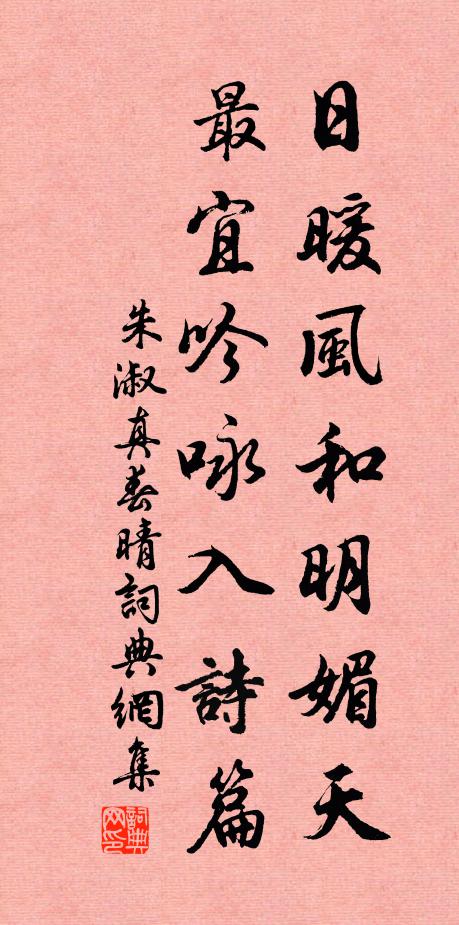 日暖風和明媚天
最宜吟咏入詩篇
朱淑真春晴詞典網集
詞典网印